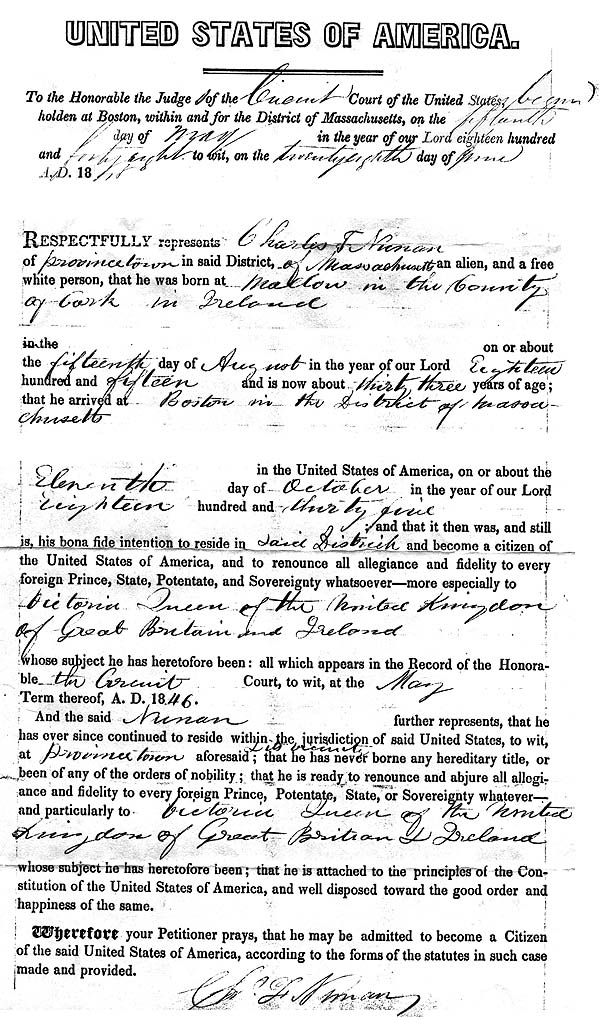 UNITED STATES OF AMERICA.
To the Honorable the Judge s of the Circuit Court of the United States, begun
holden at Boston, within and for the District of Massachusetts, on the fifteenth
day of May in the year of our Lord eighteen hundred
and forty eight to wit, on the twenty eighth day of June
A. D. 18
RESPECTFULLY represents Charles F Nunan
of Provincetown in said District, of Massachusetts an alien, and a free
white person, that he was born at Mallow in the County
of Cork in Ireland
in the on or about
the fifteenth day of August in the year of our Lord Eighteen
hundred and fifteen and is now about thirty three years of age;
that he arrived at Boston in the District of Massa-
chusetts
in the United States of America, on or about the
Eleventh day of October in the year of our Lord
eighteen hundred and thirty five
; and that it then was, and still
is, his bona fide intention to reside in said District and become a citizen of
the United States of America, and to renounce all allegiance and fidelity to every
foreign Prince, State, Potentate, and Sovereignty whatsoever—more especially to
Victoria Queen of the United Kingdom
of Great Britain and Ireland
whose subject he has heretofore been: all which appears in the Record of the Honora-
ble the Circuit Court, to wit, at the May
Term thereof, A. D. 1846.
And the said Nunan further represents, that he
has ever since continued to reside within the jurisdiction of said United States, to wit,
at Provincetown aforesaid; that he has never borne any hereditary title, or
been of any of the orders of nobility; that he is ready to renounce and abjure all allegi-
ance and fidelity to every foreign Prince, Potentate, State, or Sovereignty whatever—
and particularly to Victoria Queen of the United
Kingdom of Great Britian & Ireland
whose subject he has heretofore been; that he is attached to the principles of the Con-
stitution of the United States of America, and well disposed toward the good order and
happiness of the same.
Wherefore your Petitioner prays, that he may be admitted to become a Citizen
of the said United States of America, according to the forms of the statutes in such case
made and provided.
Chs. F Nunan